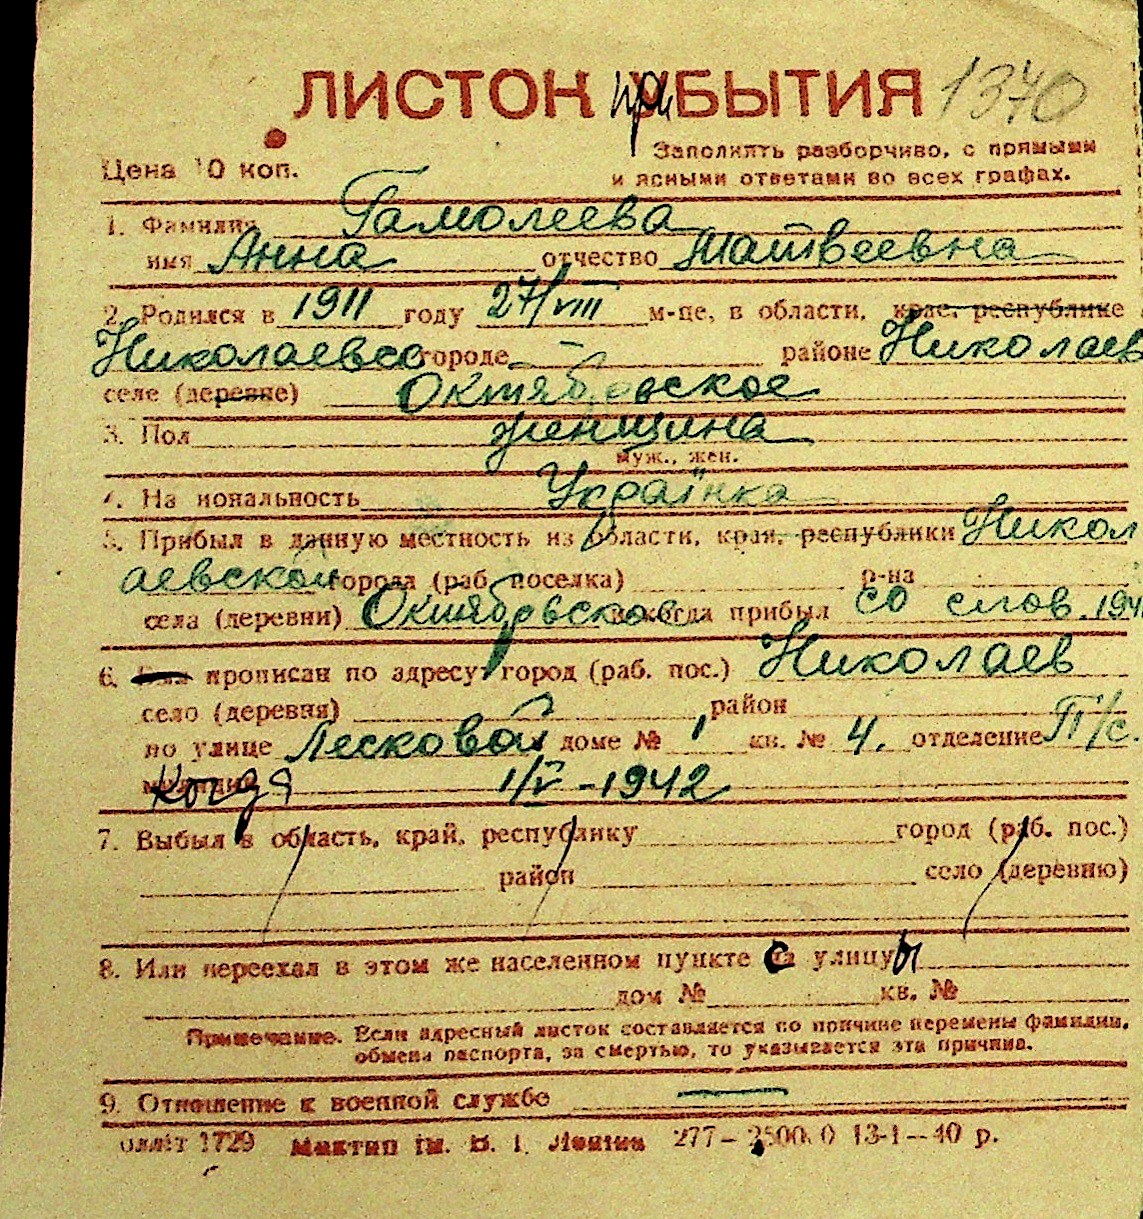 ЛИСТОК при УБЫТИЯ 1370
Цена 10 коп.
Заполнять разборчиво, с прямыми
и ясными ответами во всех графах.
1. Фамилия Гамолеева
имя Анна отчество Матвеевна
2. Родился в 1911 году 27/VIII м-це, в области, крае, республике
Николаевсо городе — районе Николаев
селе (деревне) Октябрьское
3. Пол женщина
муж., жен.
4. На иональность Українка
5. Прибыл в данную местность из области, края, республики Никол
аевской города (раб. поселка) р-на
села (деревни) Октябрьское и когда прибыл со слов. 194
6. Был прописан по адресу: город (раб. пос.) Николаев
село (деревня) район
по улице Лесковой доме № 1 кв. № 4. отделение П/с.
милиции когда 1/V - 1942
7. Выбыл в область, край, республику город (раб. пос.)
район село (деревню)
8. Или переехал в этом же населенном пункте с на улицу ы
дом № кв. №
Примечание. Если адресный листок составляется по причине перемены фамилии,
обмена паспорта, за смертью, то указывается эта причина.
9. Отношение к военной службе —
1729 ім. В. І. Леніна 277— 13-1—40 р.